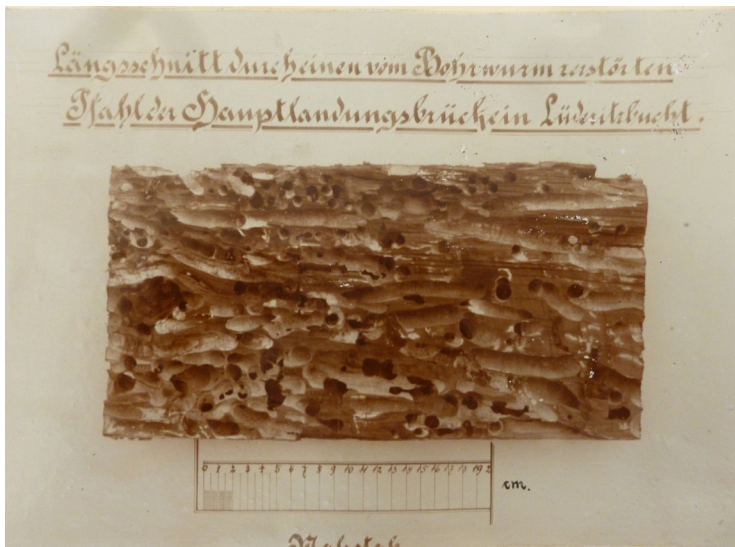 Längsschnitt durch einen vom Bohrwurm zerstörten
Pfahl der Hauptlandungsbrücke in Lüderitzbucht.
0 1 2 3 4 5 6 7 8 9 10 11 12 13 14 15 16 17 18 19 2
cm.